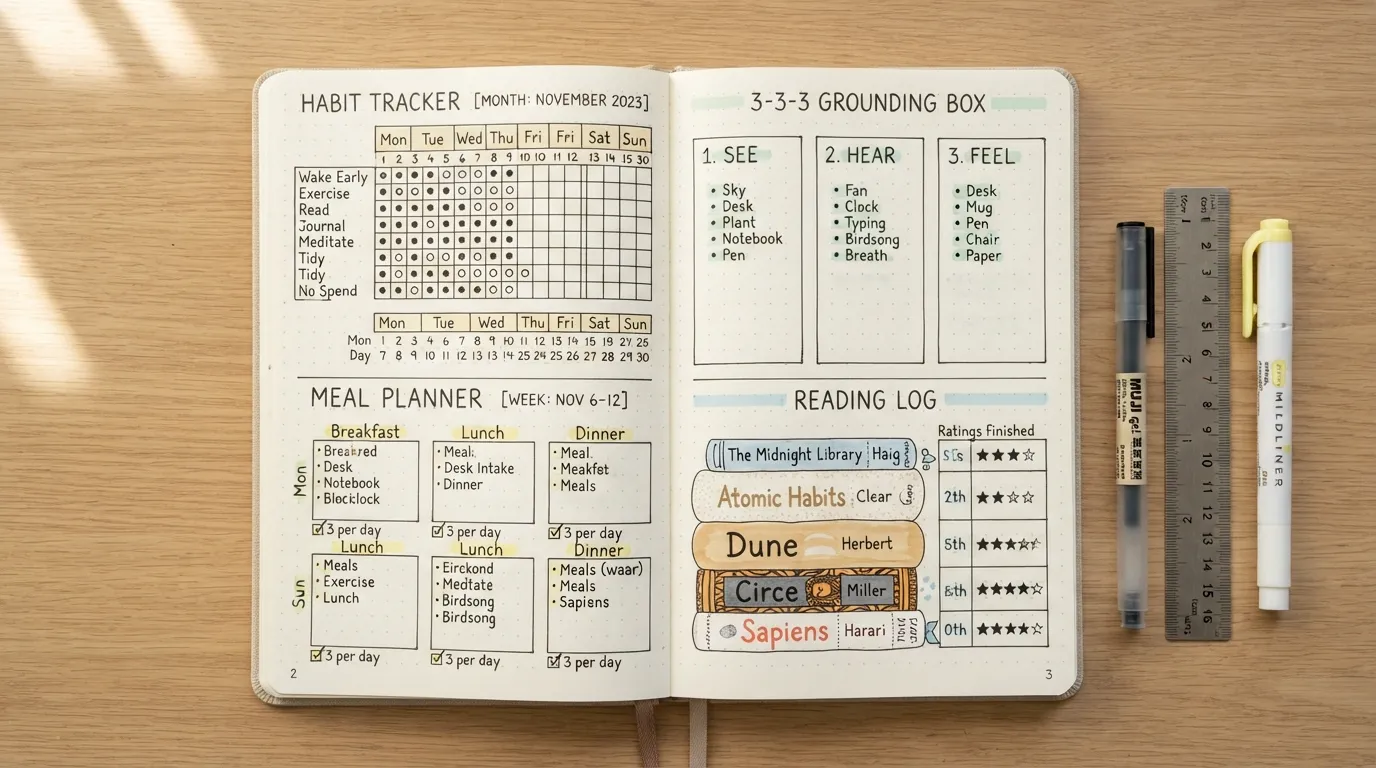 HABIT TRACKER [MONTH: NOVEMBER 2023]
Mon Tue Wed Thu Fri Fri Sat Sun
1 2 3 4 5 6 7 8 9 10 10 11 12 13 14 15 30
Wake Early
Exercise
Read
Journal
Meditate
Tidy
Tidy
No Spend
Mon Tue Wed Thu Fri Sat Sun
Mon 1 2 3 4 5 6 7 8 9 10 11 12 13 14 15 19 27 25
Day 7 8 9 10 11 12 13 12 13 14 25 24 25 26 27 28 29 30
MEAL PLANNER [WEEK: NOV 6-12]
Breakfast Lunch Dinner
Mon
• Desk
• Notebook
• Blocklock
• Meal:
• Desk Intake
• Dinner
• Meal.
• Meakfet
• Meals
3 per day 3 per day 3 per day
Lunch Lunch Dinner
Sun
• Meals
• Exercise
• Lunch
• Eirckond
• Medtate
• Birdsong
• Birdsong
• Meals (waar)
• Meals
• Sapiens
3 per day 3 per day 3 per day
2
3-3-3 GROUNDING BOX
1. SEE
• Sky
• Desk
• Plant
• Notebook
• Pen
2. HEAR
• Fan
• Clock
• Typing
• Birdsong
• Breath
3. FEEL
• Desk
• Mug
• Pen
• Chair
• Paper
READING LOG
Ratings Finished
The Midnight Library Haig
Atomic Habits Clear
2th ★★☆☆
Dune Herbert
5th
Circe Miller
★★★★☆
Sapiens Harari
0th ★★★★☆
3
MUJI Gel
1 2 3 4 5 6 7 8 9 10 11 12 13 14 15 16
MILDLINER